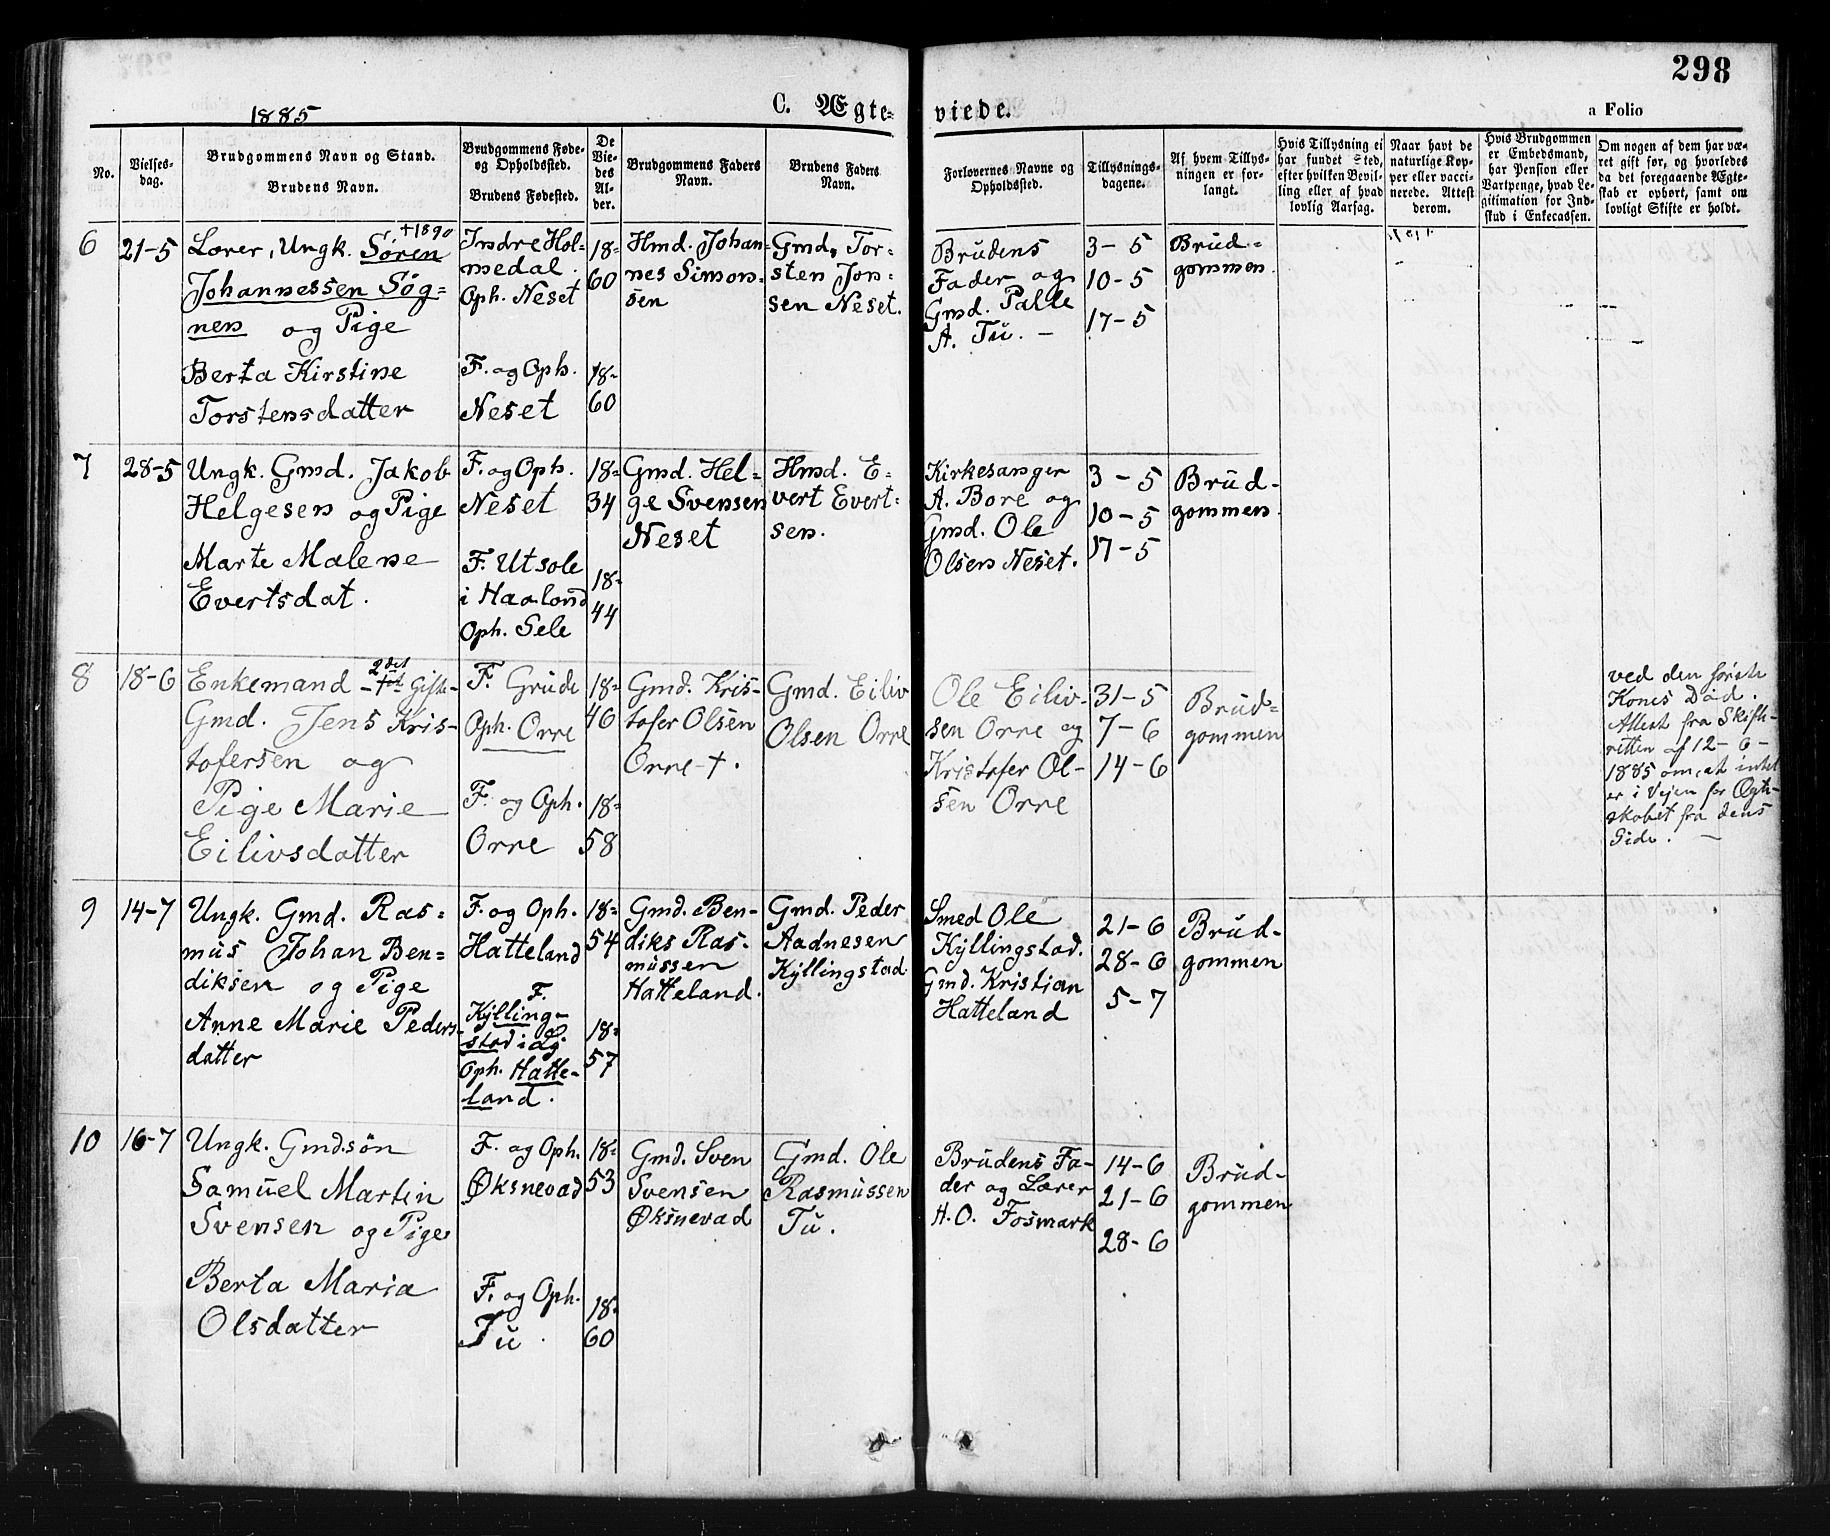 298
1885
C. Ægte-
viede.
a Folio
No.
Vielses-
dag.
Brudgommens Navn og Stand.
Brudens Navn.
Brudgommens Føde-
og Opholdssted.
Brudens Fødested.
De
Vie-
des
Al-
der.
Brudgommens Faders
Navn.
Brudens Faders
Navn.
Forlovernes Navne og
Opholdssted.
Tillysnings-
dagene.
Af hvem Tillys-
ningen er for-
langt.
Hvis Tillysning ei
har fundet Sted,
efter hvilken Bevil-
ling eller af hvad
lovlig Aarsag.
Naar havt de
naturlige Kop-
per eller vacci-
nerede. Attest
derom.
Hvis Brudgommen
er Embedsmand,
har Pension eller
Vartpenge, hvad Le-
gitimation for Ind-
skud i Enkecassen.
Om nogen af dem har væ-
ret gift før, og hvorledes
da det foregaaende Ægte-
skab er ophørt, samt om
lovligt Skifte er holdt.
6
21-5
+1890
Lærer, Ungk. Søren
Johannessen Søg-
nen og Pige
Berta Kirstine
Torstensdatter
Indre Hol-
medal.
Oph. Neset
F. og Oph.
Neset
18-
60
18-
60
Hmd. Johan-
nes Simon-
sen
Gmd. Tor-
sten Jon-
sen Neset.
Brudens
Fader og
Gmd. Palle
A. Tu. -
3-5
10-5
17-5
Brud-
gommen.
7
28-5
Ungk. Gmd. Jakob
Helgesen og Pige
Marte Malene
Evertsdat.
F. og Oph.
Neset
F. Utsole
i Haaland
Oph. Sele
18-
34
18-
44
Gmd. Hel-
ge Svensen
Neset
Hmd. E-
vert Evert-
sen.
Kirkesanger
A. Bore og
Gmd. Ole
Olsen Neset.
3-5
10-5
17-5
Brud-
gommen.
8
18-6
2det
Enkemand - Gifte-
Gmd. Jens Kris-
tofersen og
Pige Marie
Eilivsdatter
F. Grude
Oph. Orre
F. og Oph.
Orre
18-
46
18-
58
Gmd. Kris-
tofer Olsen
Orre - †.
Gmd. Eiliv
Olsen Orre
Ole Eiliv-
sen Orre og
Kristofer Ol-
sen Orre
31-5
7-6
14-6
Brud-
gommen
ved den første
Kones Død.
Attest fra Skifte-
retten af 12-6-
1885 om, at intet
er i Vejen for Ægte-
skabet fra dens
Side. -
9
14-7
Ungk. Gmd. Ras-
mus Johan Ben-
diksen og Pige
Anne Marie Peders-
datter
F. og Oph.
Hatteland
F.
Kylling-
stad i
Oph. Hatte-
land.
18-
54
18-
57
Gmd. Ben-
diks Ras-
mussen
Hatteland.
Gmd. Peder
Aadnesen
Kyllingstad
Smed Ole
Kyllingstad.
Gmd. Kristian
Hatteland
21-6
28-6
5-7
Brud-
gommen
10
16-7
Ungk. Gmdsøn
Samuel Martin
Svensen og Pige
Berta Maria
Olsdatter
F. og Oph.
Øksnevad
F. og Oph.
Tu.
18-
53
18-
60
Gmd. Sven
Svensen
Øksnevad
Gmd. Ole
Rasmussen
Tu.
Brudens Fa-
der og Lærer
H. O. Fosmark
14-6
21-6
28-6
Brud-
gommen